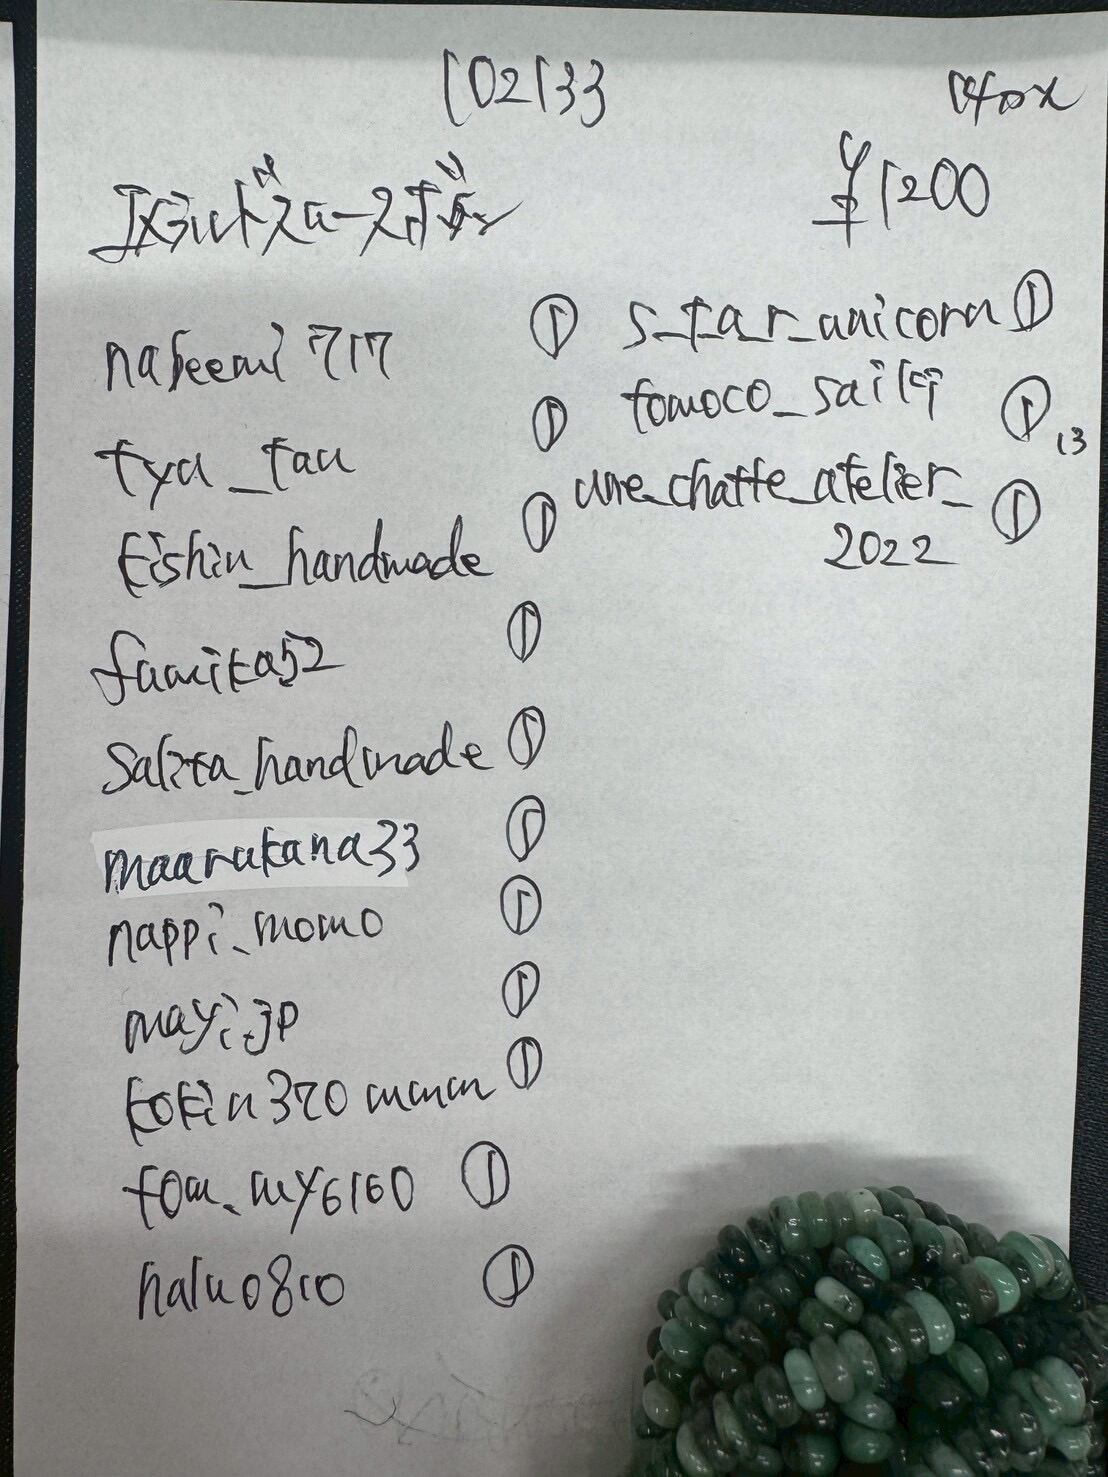 102133
エメラルドスロースボタン
¥1200
nabeemi717 ①
tya_tau ①
Eishin_handmade ①
fumika52 ①
salita_handmade ①
maarukana33 ①
nappi_momo ①
mayi.jp ①
kokin370mmm ①
tom_my6160 ①
halu0810 ①
s_t_a_r_unicorn ①
tomoco_saiki ①
13
une_chatte_atelier_
2022 ①